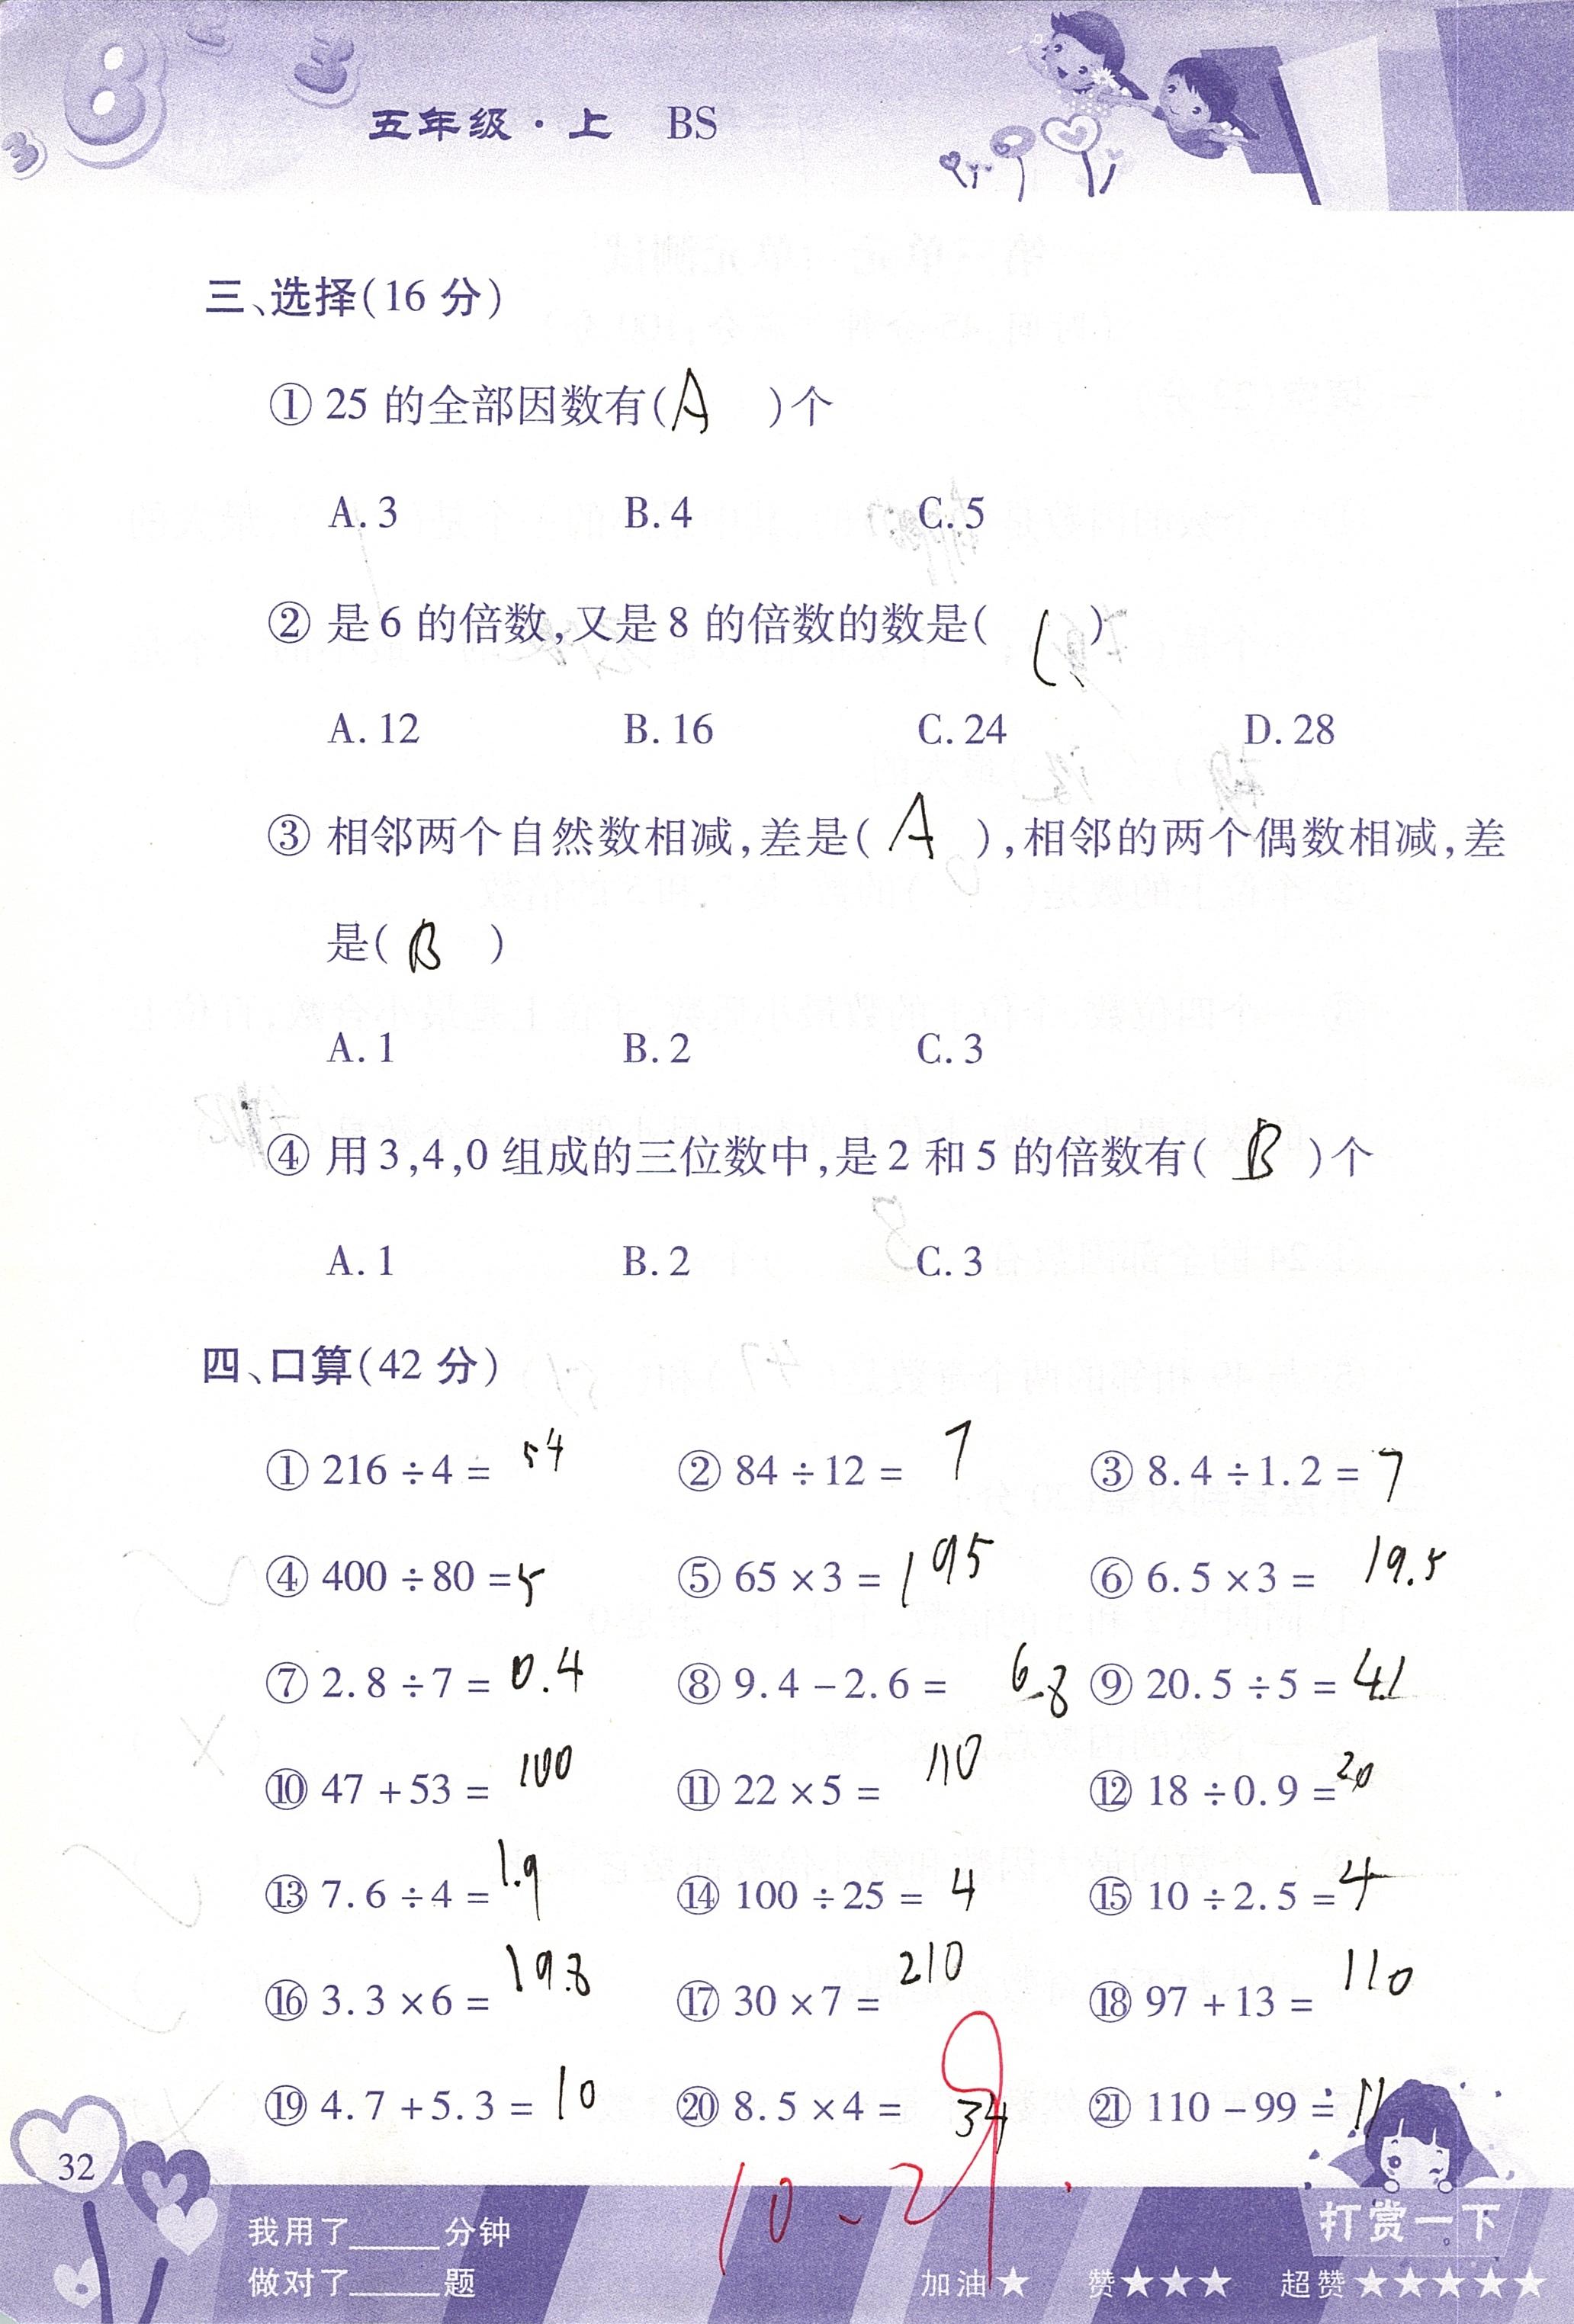 五年级·上 BS
三、选择(16 分)
① 25 的全部因数有(A )个
A. 3 B. 4 C. 5
② 是 6 的倍数,又是 8 的倍数的数是( C )
A. 12 B. 16 C. 24 D. 28
③ 相邻两个自然数相减,差是( A ),相邻的两个偶数相减,差
是( B )
A. 1 B. 2 C. 3
④ 用 3,4,0 组成的三位数中,是 2 和 5 的倍数有( B )个
A. 1 B. 2 C. 3
四、口算(42 分)
① 216 ÷ 4 = 54 ② 84 ÷ 12 = 7 ③ 8.4 ÷ 1.2 = 7
④ 400 ÷ 80 = 5 ⑤ 65 × 3 = 195 ⑥ 6.5 × 3 = 19.5
⑦ 2.8 ÷ 7 = 0.4 ⑧ 9.4 - 2.6 = 6.8 ⑨ 20.5 ÷ 5 = 4.1
⑩ 47 + 53 = 100 ⑪ 22 × 5 = 110 ⑫ 18 ÷ 0.9 = 20
⑬ 7.6 ÷ 4 = 1.9 ⑭ 100 ÷ 25 = 4 ⑮ 10 ÷ 2.5 = 4
⑯ 3.3 × 6 = 19.8 ⑰ 30 × 7 = 210 ⑱ 97 + 13 = 110
⑲ 4.7 + 5.3 = 10 ⑳ 8.5 × 4 = 34 ㉑ 110 - 99 = 11
32
10.29.
打赏一下
我用了____分钟
做对了____题
加油★ 赞★★★ 超赞★★★★★